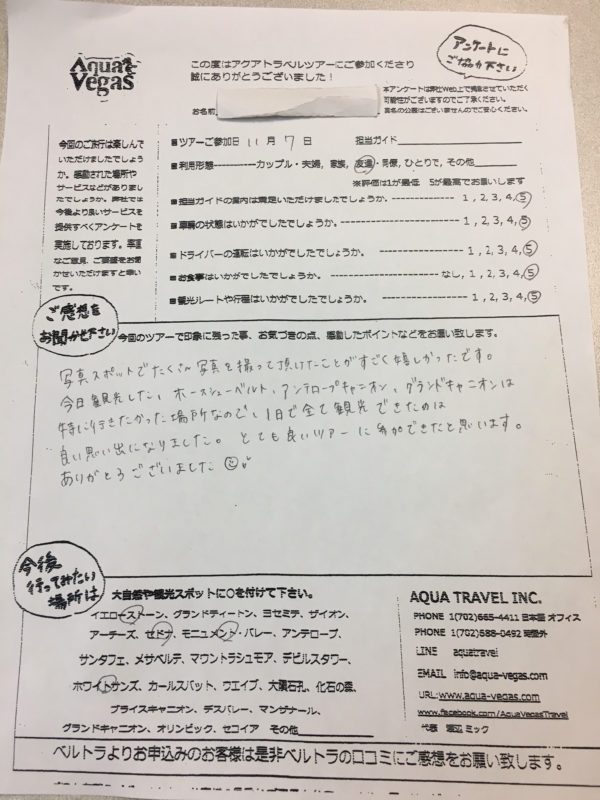 Aqua Vegas
この度はアクアトラベルツアーにご参加くださり
誠にありがとうございました！
アンケートに
ご協力下さい
お名前
本アンケートは弊社Web上で掲載させていただく
可能性がございますのでご了承ください。
実名の公開はございませんのでご安心ください。
今回のご旅行は楽しんで
いただけましたでしょう
か。感動された場所や
サービスなどがありまし
たでしょうか。弊社では
今後より良いサービスを
提供すべくアンケートを
実施しております。率直
なご意見、ご要望をお聞
かせいただけますと幸い
です。
■ツアーご参加日 11 月 7 日 担当ガイド
■利用形態-----------カップル・夫婦, 家族, 友達・同僚, ひとりで, その他
※評価は1が最低 5が最高でお願いします
■担当ガイドの案内は満足いただけましたでしょうか。 1, 2, 3, 4, 5
■車輌の状態はいかがでしたでしょうか。 1, 2, 3, 4, 5
■ドライバーの運転はいかがでしたでしょうか。 1, 2, 3, 4, 5
■お食事はいかがでしたでしょうか。 なし, 1, 2, 3, 4, 5
■観光ルートや行程はいかがでしたでしょうか。 1, 2, 3, 4, 5
ご感想を
お聞かせ下さい
今回のツアーで印象に残った事、お気づきの点、感動したポイントなどをお願い致します。
写真スポットでたくさん写真を撮って頂けたことがすごく嬉しかったです。
今日観光した、ホースシューベルト、アンテロープキャニオン、グランドキャニオンは
特に行きたかった場所なので、1日で全て観光できたのは
良い思い出になりました。とても良いツアーに参加できたと思います。
ありがとうございました
今後
行ってみたい
場所は
大自然や観光スポットに○を付けて下さい。
イエローストーン、グランドティートン、ヨセミテ、ザイオン、
アーチーズ、セドナ、モニュメント・バレー、アンテロープ、
サンタフェ、メサベルデ、マウントラシュモア、デビルスタワー、
ホワイトサンズ、カールスバット、ウエイブ、大隕石孔、化石の森、
ブライスキャニオン、デスバレー、マンザナール、
グランドキャニオン、オリンピック、セコイア その他
AQUA TRAVEL INC.
PHONE 1(702)665-4411 日本語 オフィス
PHONE 1(702)588-0492 時間外
LINE aquatravel
EMAIL info@aqua-vegas.com
URL:www.aqua-vegas.com
www.facebook.com/AquaVegasTravel
代表 渡辺 ミック
ベルトラよりお申込みのお客様は是非ベルトラの口コミにご感想をお願い致します。